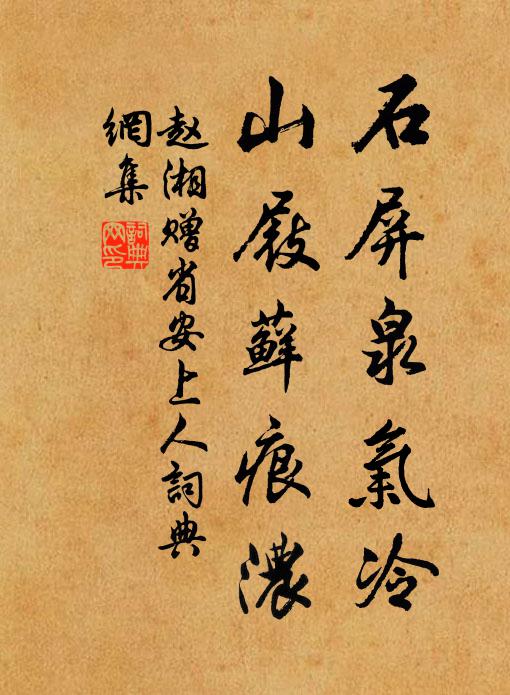 石屏泉氣冷
山屐蘚痕濃
赵湘赠省安上人詞典
網集
詞典
网印